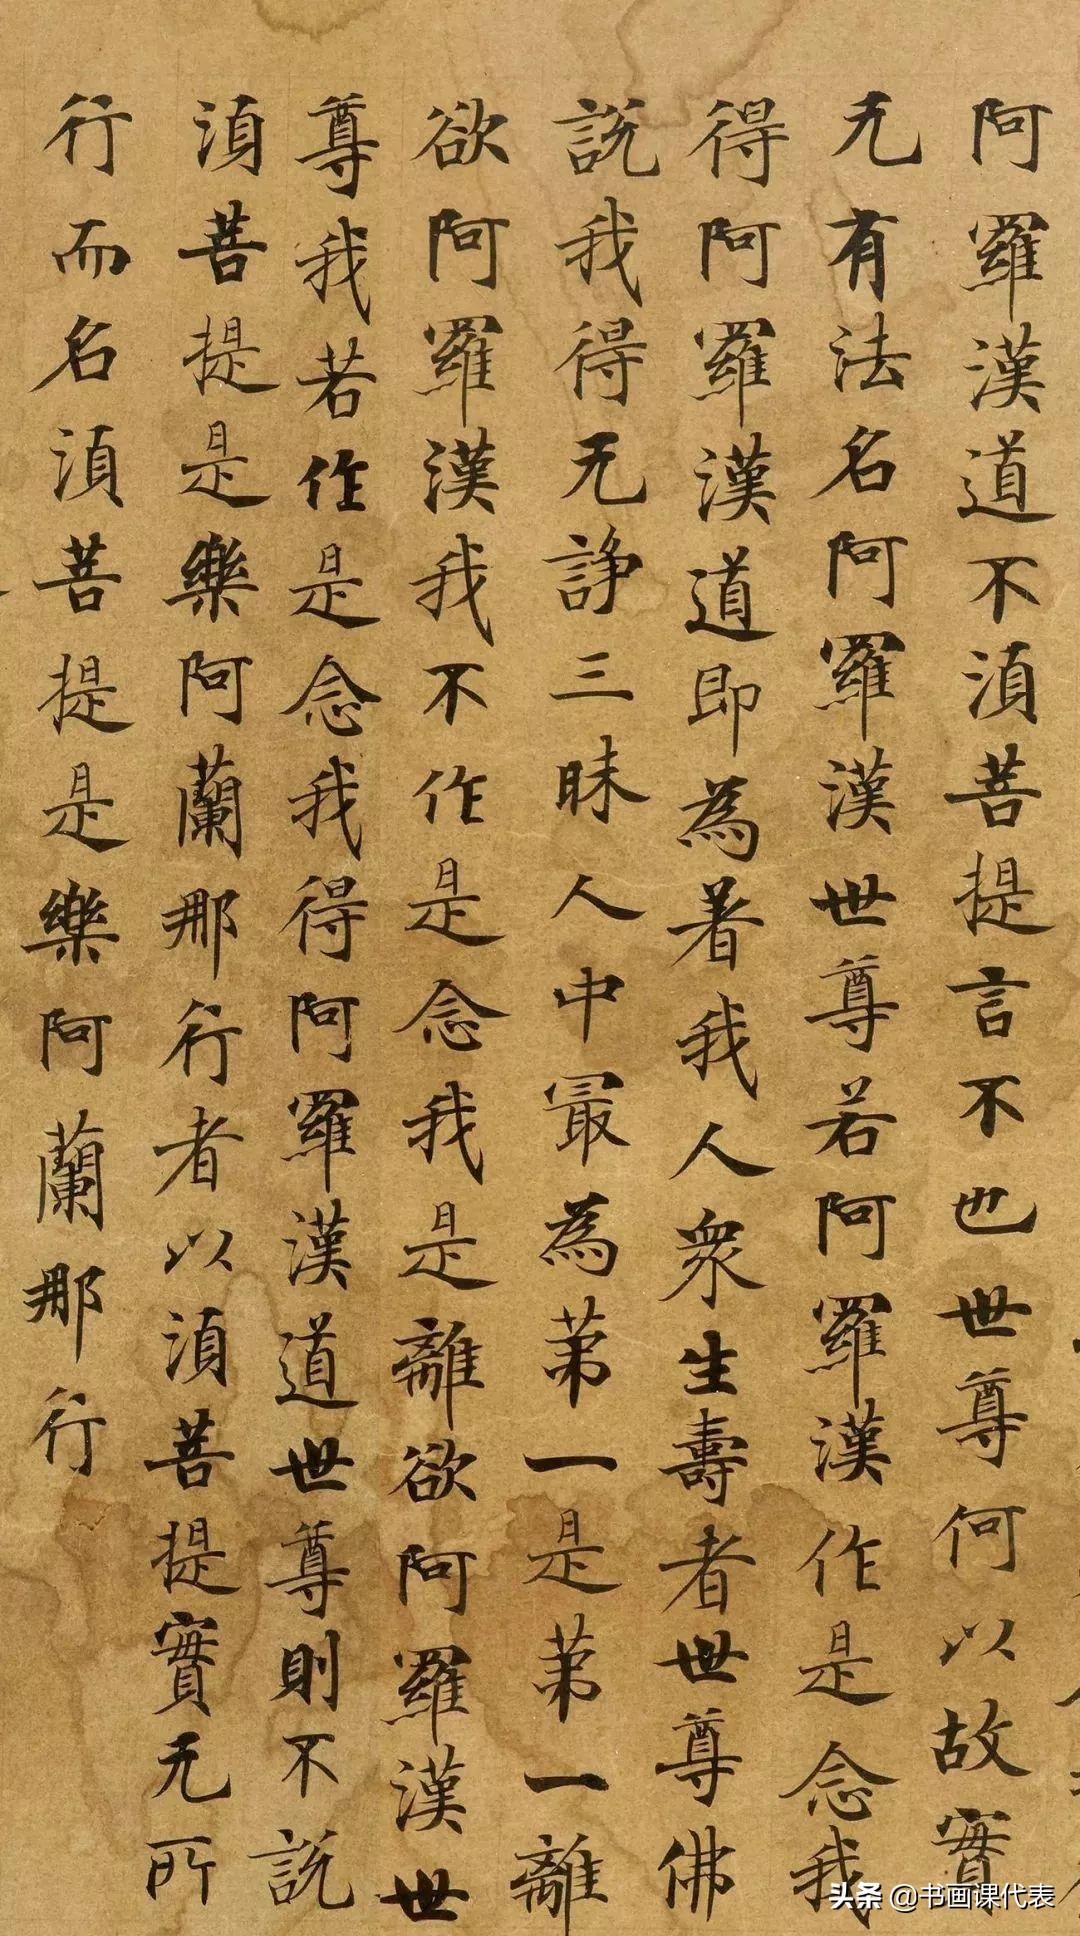 阿羅漢道不湏菩提言不也世尊何以故實
无有法名阿羅漢世尊若阿羅漢作是念我
得阿羅漢道即為著我人眾生壽者世尊佛
說我得无諍三昧人中最為苐一是苐一離
欲阿羅漢我不作是念我是離欲阿羅漢世
尊我若作是念我得阿羅漢道世尊則不說
湏菩提是樂阿蘭那行者以湏菩提實无所
行而名湏菩提是樂阿蘭那行
头条 @书画课代表